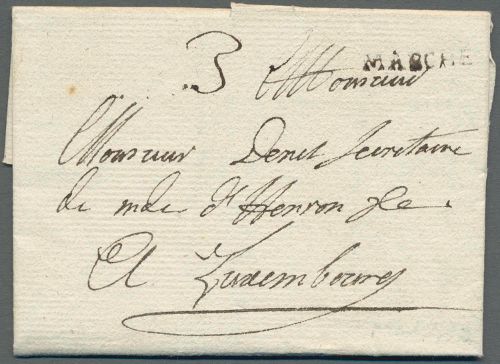 3 Monsieur MARCHE
Monsieur Denet Secretaire
de mde d'Henron &c.
A Luxembourg